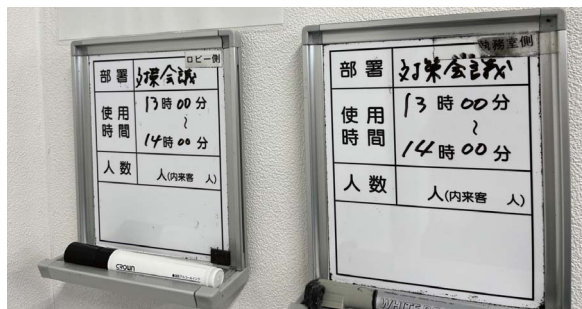 ロビー側
部署 対策会議
使用時間 13時00分
~
14時00分
人数 人(内来客 人)
CROWN
執務室側
部署 対策会議
使用時間 13時00分
~
14時00分
人数 人(内来客 人)